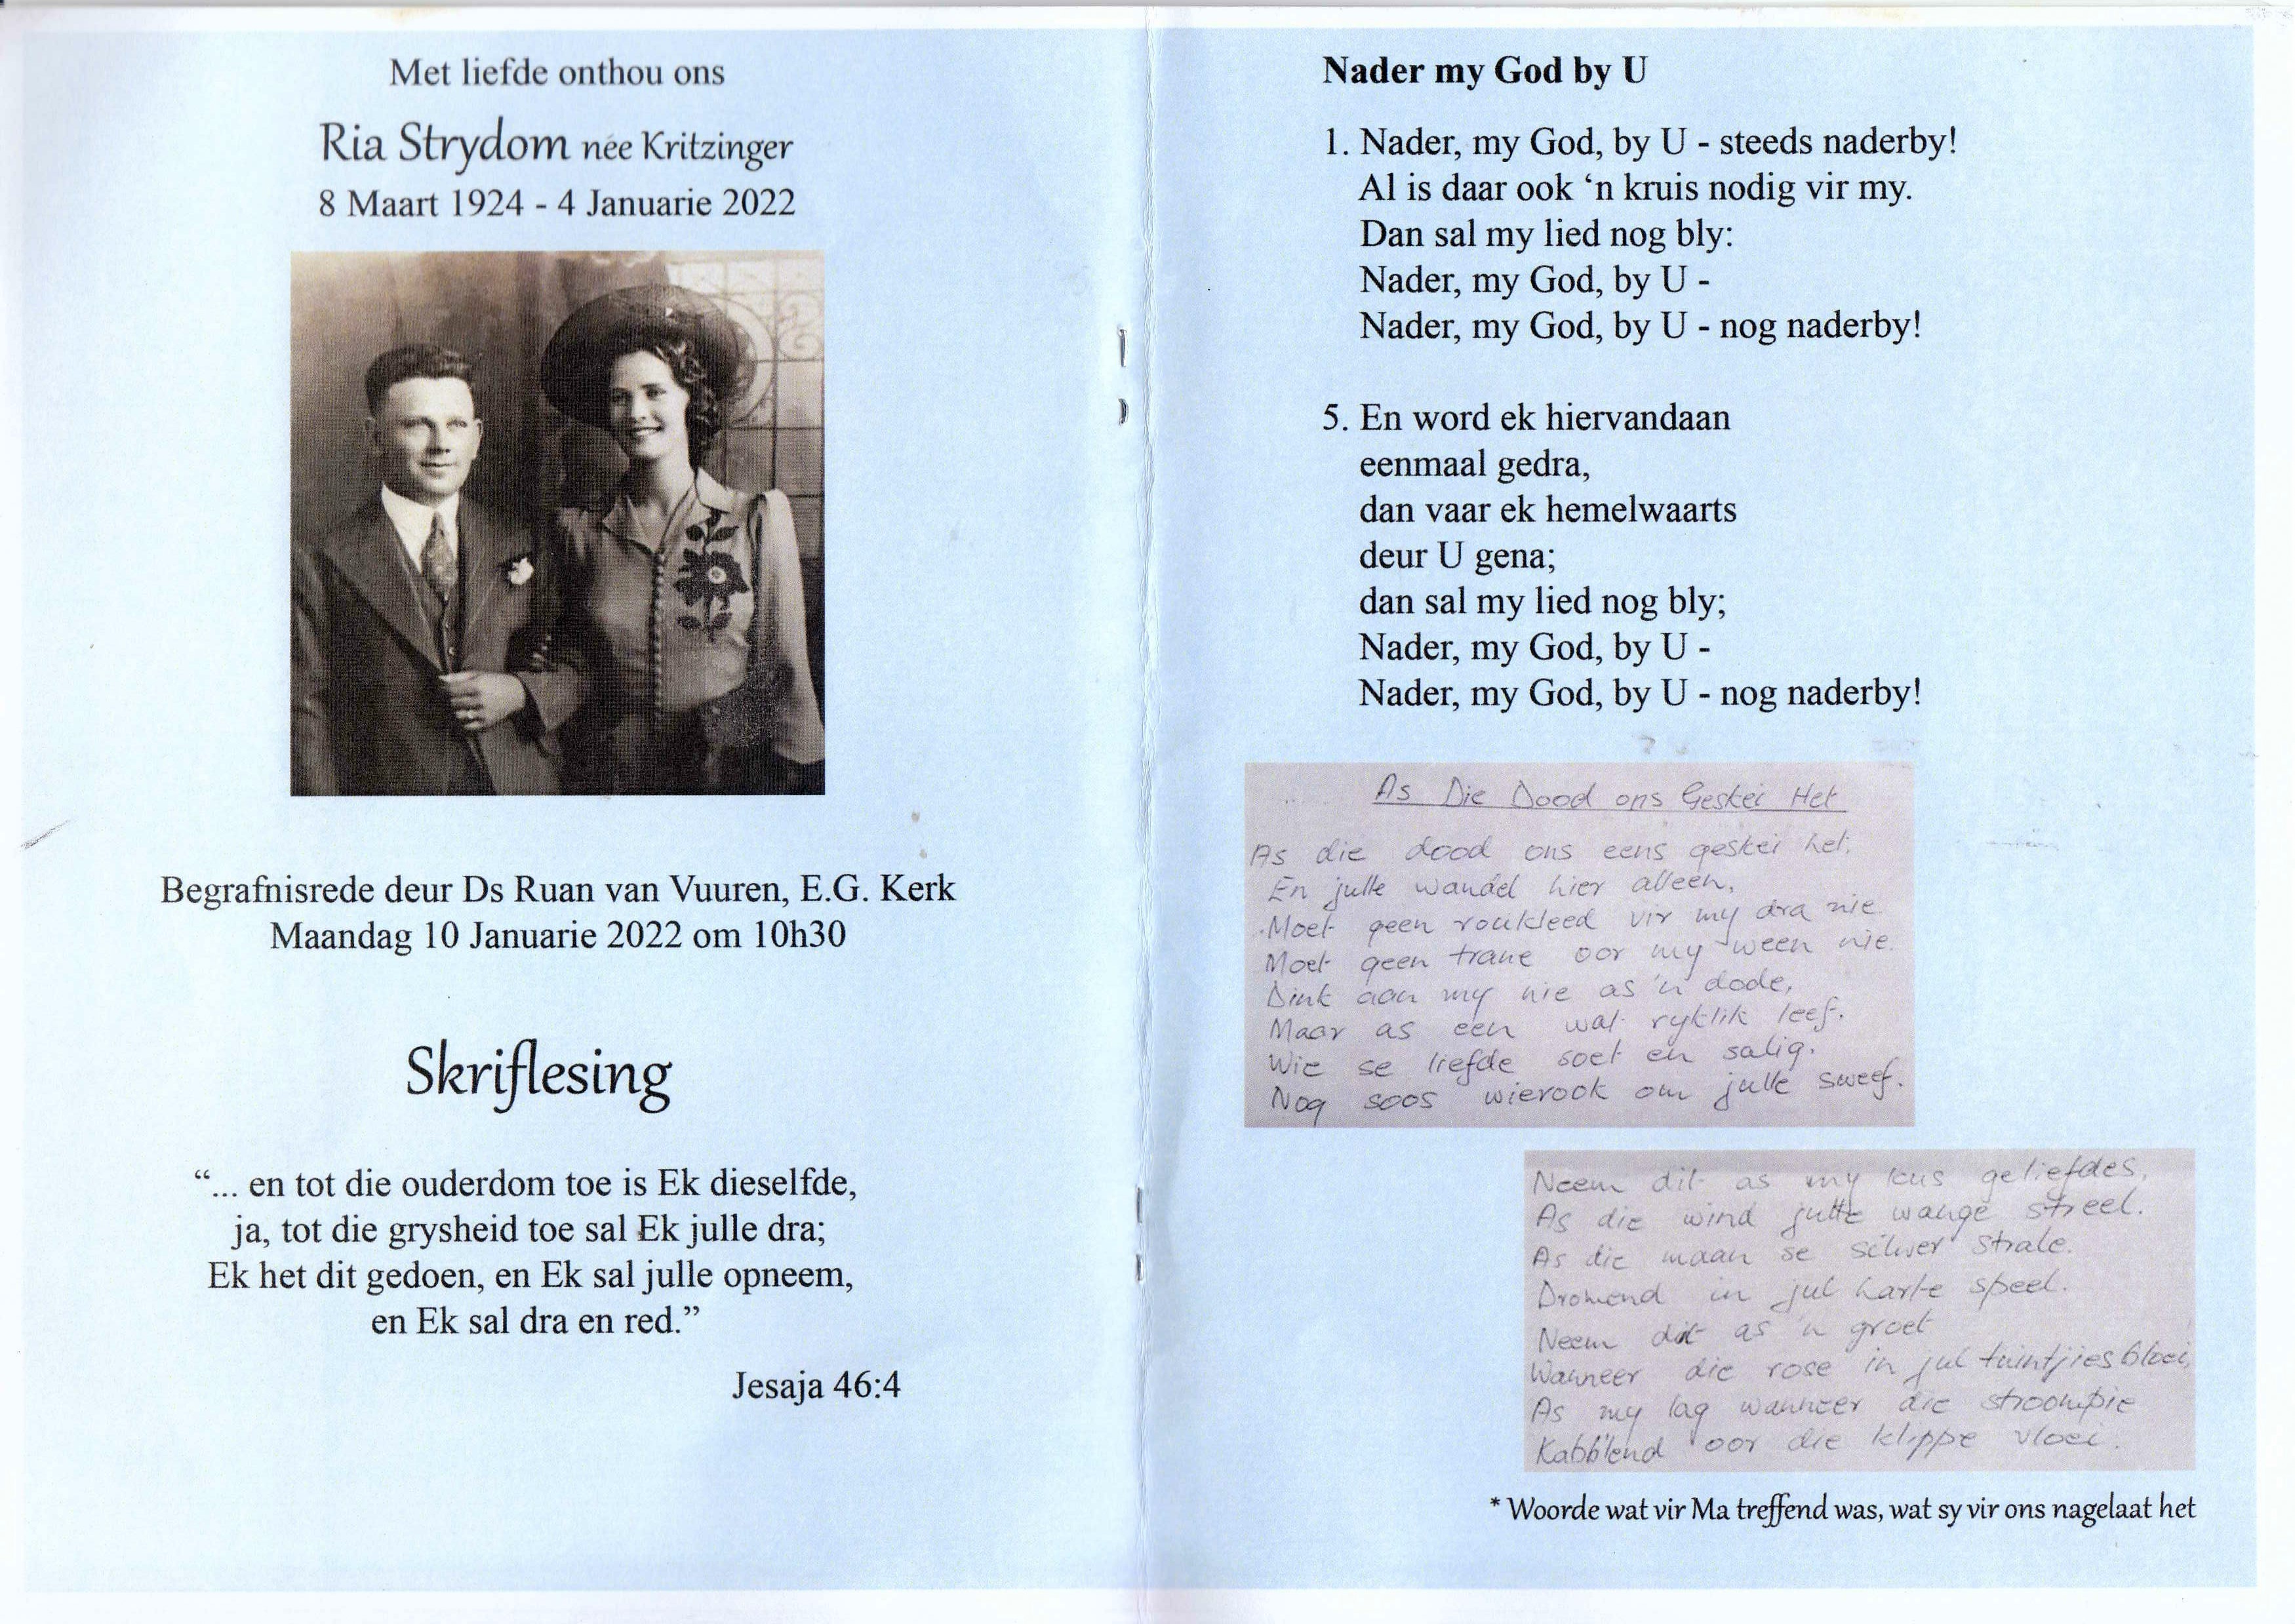 Met liefde onthou ons
Ria Strydom née Kritzinger
8 Maart 1924 - 4 Januarie 2022
Begrafnisrede deur Ds Ruan van Vuuren, E.G. Kerk
Maandag 10 Januarie 2022 om 10h30
Skriflesing
“... en tot die ouderdom toe is Ek dieselfde,
ja, tot die grysheid toe sal Ek julle dra;
Ek het dit gedoen, en Ek sal julle opneem,
en Ek sal dra en red.”
Jesaja 46:4
Nader my God by U
1. Nader, my God, by U - steeds naderby!
Al is daar ook ‘n kruis nodig vir my.
Dan sal my lied nog bly:
Nader, my God, by U -
Nader, my God, by U - nog naderby!
5. En word ek hiervandaan
eenmaal gedra,
dan vaar ek hemelwaarts
deur U gena;
dan sal my lied nog bly;
Nader, my God, by U -
Nader, my God, by U - nog naderby!
As Die Dood ons Geskei Het
As die dood ons eens geskei het.
En julle wandel hier alleen,
Moet geen roukleed vir my dra nie
Moet geen trane oor my ween nie.
Dink aan my nie as 'n dode,
Maar as een wat ryklik leef.
Wie se liefde soet en salig.
Nog soos wierook om julle sweef.
Neem dit as my kus geliefdes,
As die wind julle wange streel.
As die maan se silwer strale.
Dromend in jul harte speel.
Neem dit as 'n groet
Wanneer die rose in jul tuintjies bloei,
As my lag wanneer die stroompie
Kabb'lend oor die klippe vloei.
* Woorde wat vir Ma treffend was, wat sy vir ons nagelaat het